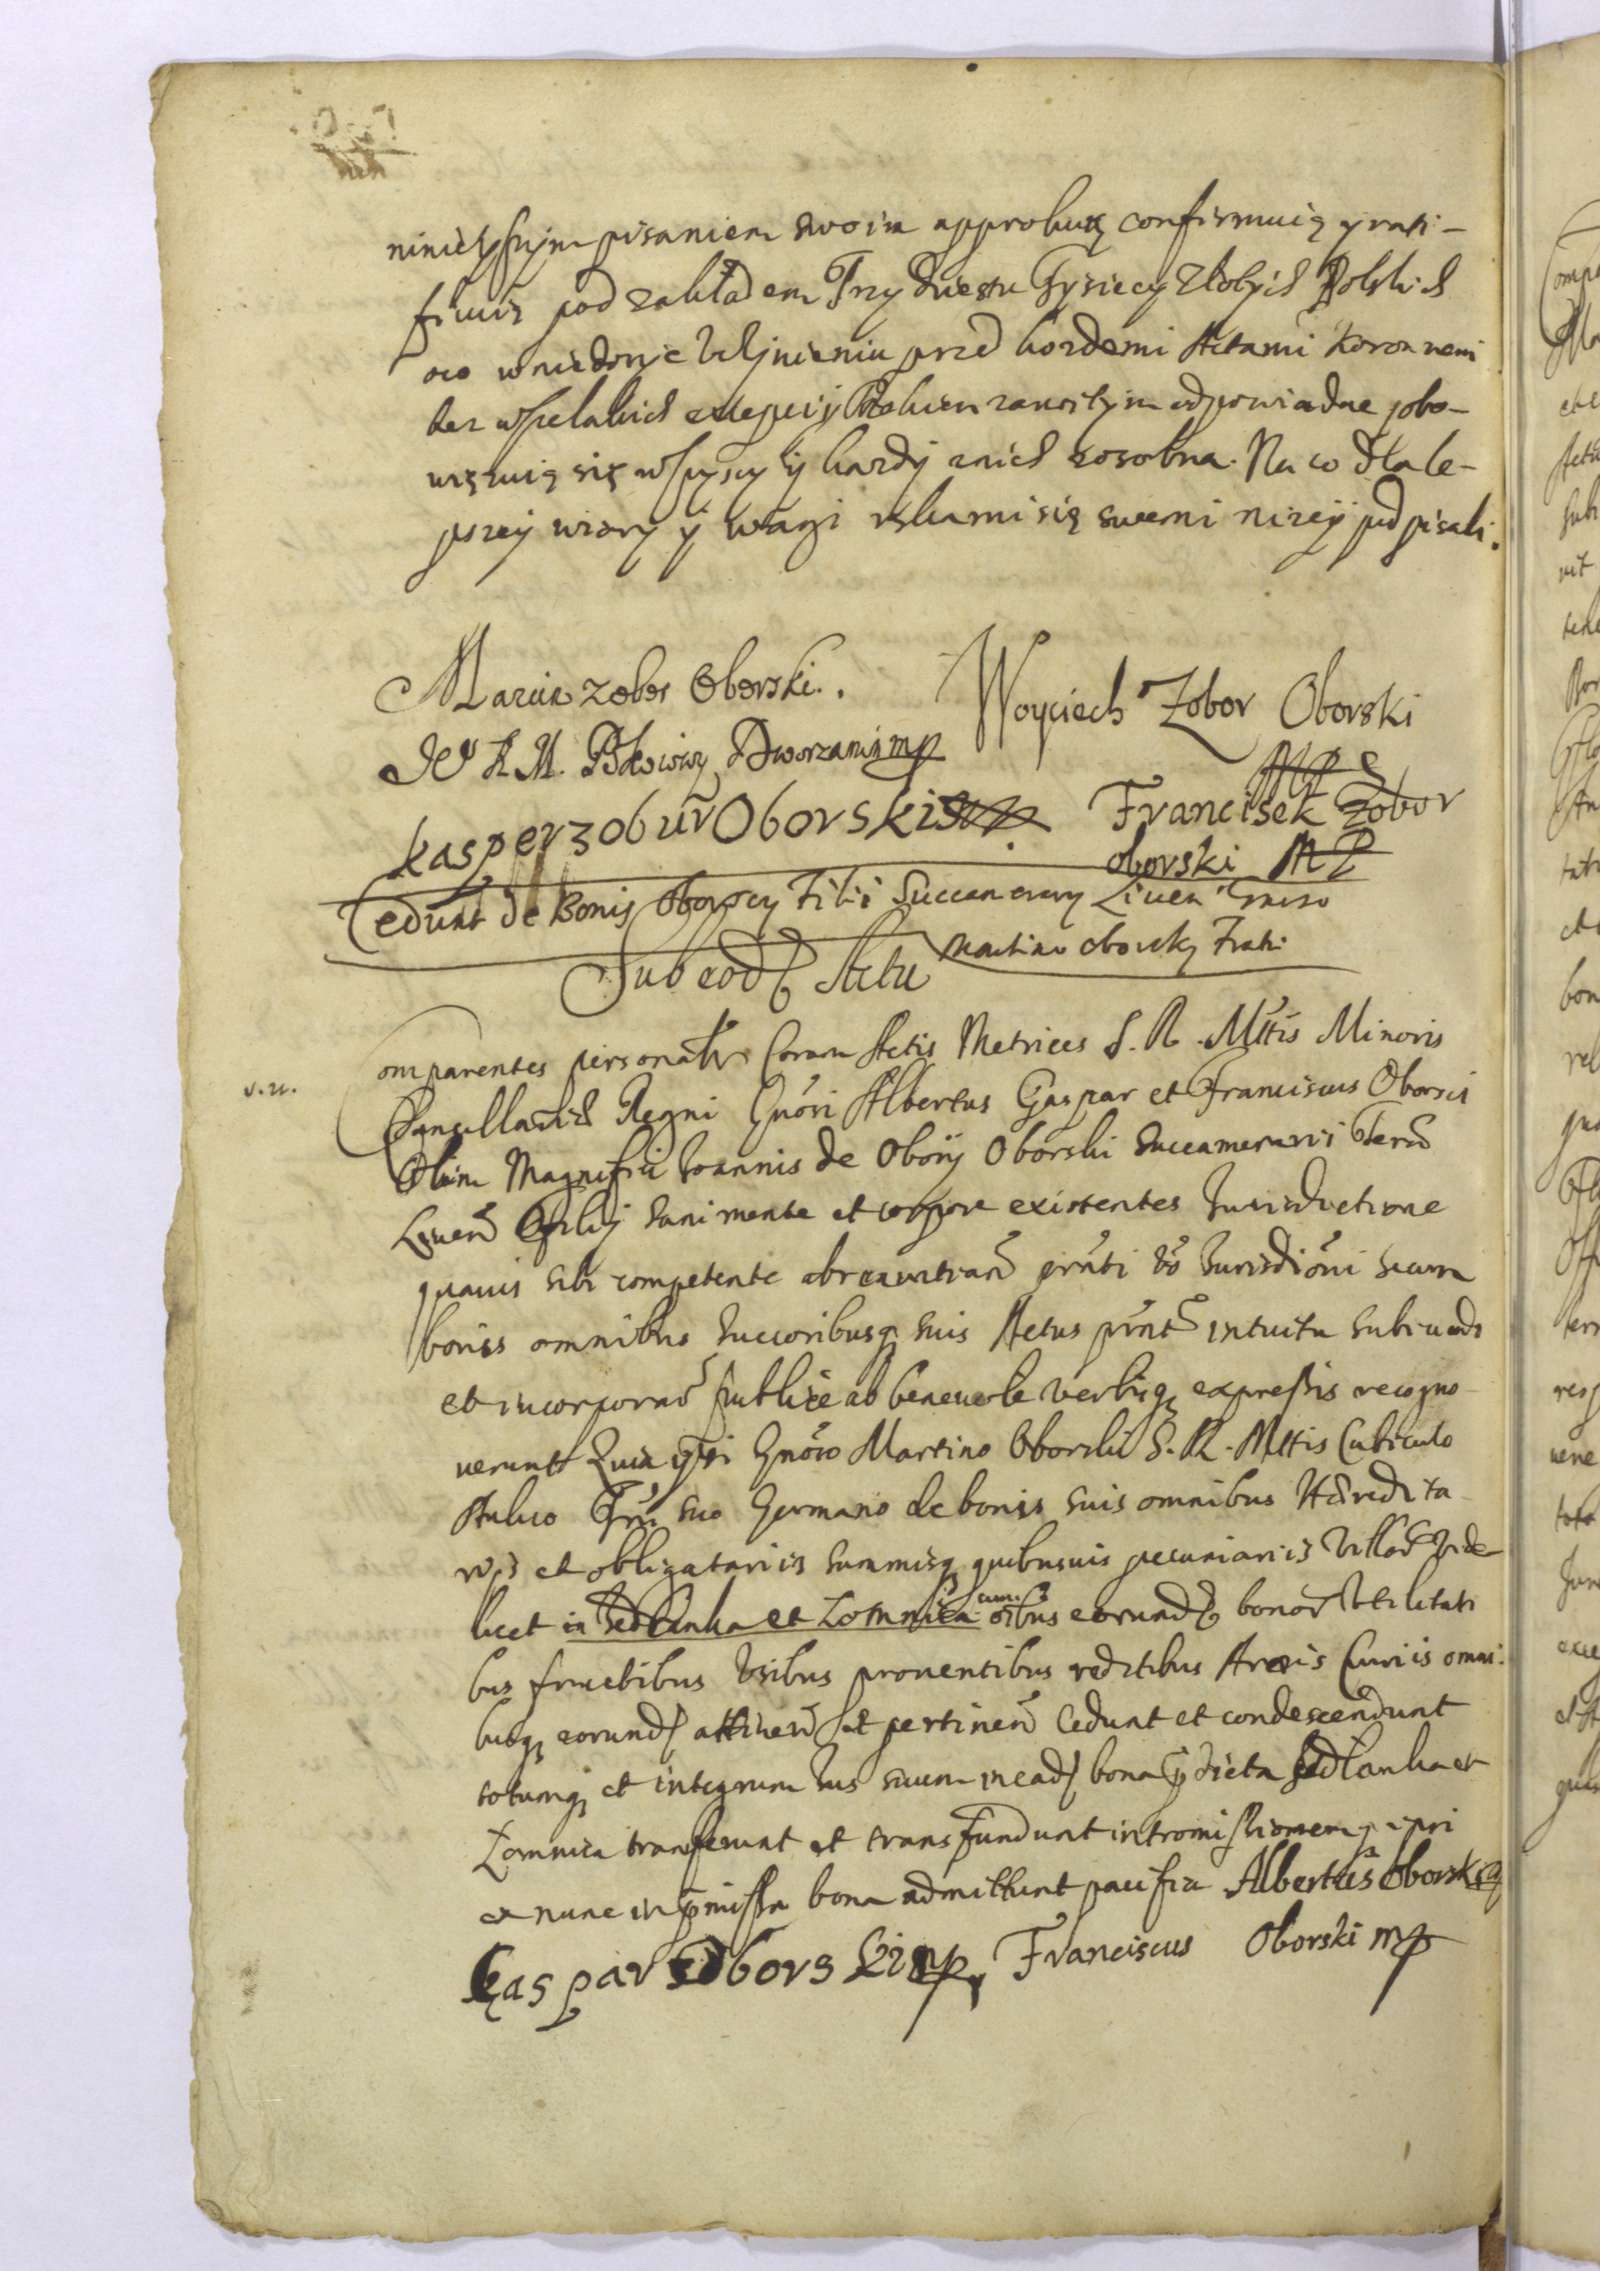 ninieyszym pisaniem swoim approbuią confirmuią y rati-
fikuią pod zakładem Trzydziestu Tysięcy złotych Polskich
oco w niedosyć vczynieniu przed kozdemi Actami Koronnemi
bez wszelakich excepciy odpowiadac y obo-
wiązuią się wszyscy y kazdy znich zosobna. Na co dla le-
pszey wiary y wagi rękami się swemi nizey podpisali.
Marcin z obor Oborski.
Je° K M. Pokoiowy Dworzanin mp
Woyciech z Obor Oborski
MP
kasper z obur Oborski mp
Francisek z obor
oborski MP
Cedunt de Bonis Oborscy Filii Succamerary Liuen Gnoso
Martino oborsky Fratri
Sub eod Actu
v. n.
Comparentes personaltr Coram Actis Metrices S. R. Mttis Minoris
Cancellariæ Regni Gnosi Albertus Gaspar et Franciscus Oborscii
Olim Magnifici Joannis de Obory Oborski Succamerarii Terræ
Liuen Filij sani mente et corpore existentes Jurisdictione
quauis sibi competente prnti vo Jurisdioni secum
bonis omnibus succoribusq suis Actus prntis intuitu subiiciendo
et incorporando publice ac beneuole verbisq expressis recogno-
uerunt Quia ipsi Gnoso Martino Oborski S. R. Mttis Cubiculo
Aulico Fri suo Germano de bonis suis omnibus Hæredita-
rijs et obligatariis summisq quibusuis pecuniariis Villar Vide-
licet in Sedlanka et Łomnica cum oibus eorund bonor Vtilitati
bus fructibus Vsibus prouentibus reditibus Areis Curiis omni-
busq eorund attinen et pertinen Cedunt et condescendunt
totumq et integrum Jus suum in ead bona pdicta Sedlanka et
Łomnica transferunt et transfundunt intromissionemq ipsi
ex nunc in pmissa bona admittunt pacificam Albertus Oborski mp
Gaspar Oborski mp, Franciscus Oborski mp